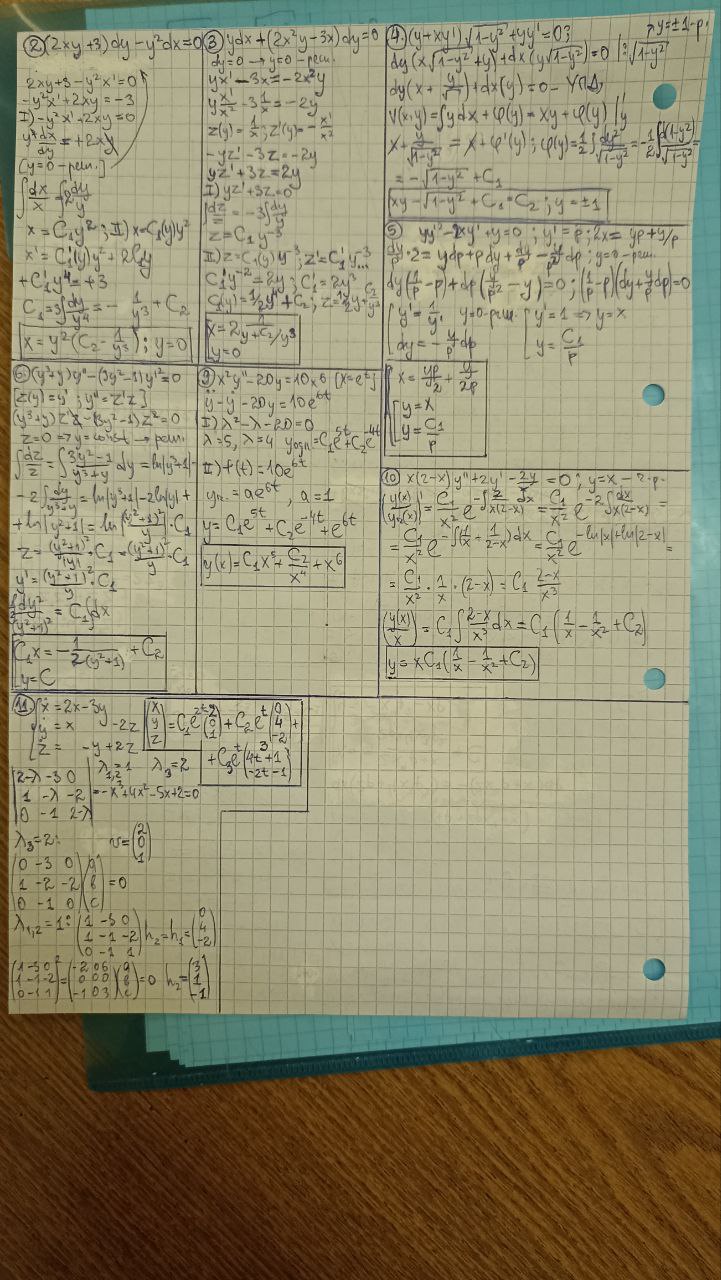 ② (2xy+3)dy - y²dx = 0
2xy+3 - y²x' = 0
-y²x' + 2xy = -3
I) -y²x' + 2xy = 0
y² dx/dy = +2xy
[y=0 - реш.]
∫dx/x = ∫2dy/y
x = C₁y²; II) x = C₁(y)y²
x' = C₁'(y)y² + 2C₁y
+C₁'y⁴ = +3
C₁ = 3∫dy/y⁴ = -1/y³ + C₂
x = y²(C₂ - 1/y³); y=0
③ ydx + (2x²y - 3x)dy = 0
dy=0 → y=0 - реш.
yx' - 3x = -2x²y
y x'/x² - 3 1/x = -2y
z(y) = 1/x; z'(y) = -x'/x²
-yz' - 3z = -2y
yz' + 3z = 2y
I) yz' + 3z = 0
∫dz/z = -3∫dy/y
z = C₁y⁻³
II) z = C₁(y)y⁻³; z' = C₁'y⁻³...
C₁'y⁻² = 2y; C₁' = 2y³
C₁(y) = 1/2 y⁴ + C₂; z = 1/2 y + C₂/y³
y=0
④ (y+xy')√1-y² + yy' = 0;
→ y=±1 - р.
dy(x√1-y² + y) + dx(y√1-y²) = 0 |:√1-y²
dy(x + y/√1-y²) + dx(y) = 0 - УПД
V(x,y) = ∫ydx + φ(y) = xy + φ(y) |'y
x + y/√1-y² = x + φ'(y); φ(y) = 1/2∫dy²/√1-y² = -1/2∫d(1-y²)/√1-y² =
= -√1-y² + C₁
xy - √1-y² + C₁ = C₂; y=±1
⑤ yy'² - 2xy' + y = 0; y' = p; 2x = yp + y/p
dy/p · 2 = ydp + pdy + dy/p - y/p² dp; y=0 - реш.
dy(1/p - p) + dp(y/p² - y) = 0; (1/p - p)(dy + y/p dp) = 0
dy = -y/p dp
y = C₁/p
x = yp/2 + y/2p
y = x
y = C₁/p
⑥ (y³+y)y'' - (3y²-1)y'² = 0
[z(y)=y'; y''=z'z]
(y³+y)z'z - (3y²-1)z² = 0
z=0 ⇒ y=const → реш.
∫dz/z = ∫(3y²-1)/(y³+y) dy = ln|y³+y| -
-2∫dy/(y³+y) = ln|y³+y| - 2ln|y| +
+ ln|y²+1| = ln|(y²+1)²/y| · C₁
z = (y²+1)²/|y| · C₁ = (y²+1)²/y · C₁
y' = (y²+1)²/y · C₁
C₁x = -1/2(y²+1) + C₂
y = C
⑨ x²y'' - 20y = 10x⁶ [x=eᵗ]
ÿ - ẏ - 20y = 10e⁶ᵗ
I) λ²-λ-20=0
λ=5, λ=4 yодн = C₁e⁵ᵗ + C₂e⁻⁴ᵗ
II) f(t) = 10e⁶ᵗ
yч. = ae⁶ᵗ, a=1
y = C₁e⁵ᵗ + C₂e⁻⁴ᵗ + e⁶ᵗ
y(x) = C₁x⁵ + C₂/x⁴ + x⁶
⑩ x(2-x)y'' + 2y' - 2y/x = 0; y=x - ч.р.
= C₁/x² e^-∫(1/x + 1/(2-x))dx = C₁/x² e^-ln|x|+ln|2-x| =
= C₁/x² · 1/x · (2-x) = C₁ (2-x)/x³
(y(x)/x) = C₁∫(2-x)/x³ dx = C₁(1/x - 1/x² + C₂)
y = xC₁(1/x - 1/x² + C₂)
⑪ ẋ = 2x-3y
ẏ = x -2z
ż = -y+2z
(x y z) = C₁e²ᵗ(2 0 1) + C₂eᵗ(0 4 -2) +
+ C₃eᵗ(3 4t+1 -2t-1)
λ₁,₂=1 λ₃=2
|2-λ -3 0|
|1 -λ -2| = -λ³+4λ²-5λ+2=0
|0 -1 2-λ|
λ₃=2: v=(2 0 1)
(0 -3 0) (a)
(1 -2 -2) (b) = 0
(0 -1 0) (c)
h₂ = (3 1 -1)